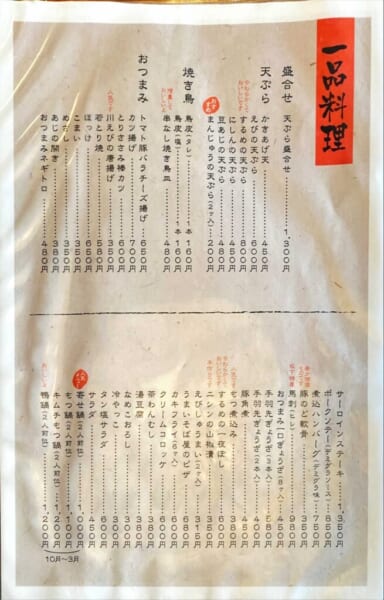 一品料理
盛合せ
天ぷら盛合せ…………1,300円
天ぷら
かきあげ天…………450円
えびの天ぷら…………600円
やわらかくておいしいです
するめの天ぷら…………800円
にしんの天ぷら…………480円
豆あじの天ぷら…………480円
おすすめ
まんじゅうの天ぷら(2ヶ)……200円
焼き鳥
鳥皮(タレ)……1本 160円
鳥皮(塩)……1本 160円
串なし焼き鳥皿…………480円
おつまみ
トマト豚バラチーズ揚げ……650円
カツ揚げ…………700円
とりささみ棒カツ…………600円
人気です
川えびの唐揚げ…………350円
若とり揚げ…………580円
ほっけ…………650円
こまい…………350円
めざし…………350円
あじの開き…………380円
おつまみネギトロ…………480円
サーロインステーキ……1,350円
ポークソテー(デミグラソース)……850円
煮込ハンバーグ(デミグラ味)……750円
豚のど軟骨…………350円
馬刺(ヒレ)…………980円
おつまみ一口ぎょうざ(8ヶ入)……450円
手羽先ぎょうざ(3本入)……580円
手羽先煮(3本入)……400円
豚角煮…………450円
人気です
もつ煮込み…………380円
やわらかくておいしいです
するめの一夜ぼし…………600円
ニシンの山椒漬…………350円
えびしゅうまい(2ヶ)……315円
うまいそば屋のピザ……680円
カキフライ(6ヶ入)……680円
クリームコロッケ…………600円
茶わんむし…………380円
湯豆腐…………380円
なめこおろし…………300円
冷やっこ…………300円
タン塩サラダ…………600円
サラダ…………450円
寄せ鍋(2人前位)……1,000円
もつ鍋(2人前位)……1,100円
キムチもつ鍋(2人前位)……1,200円
おいしいよ
鴨鍋(2人前位)……1,200円
10月〜3月